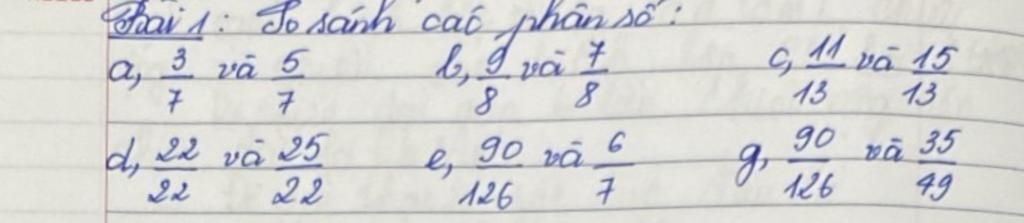 Bài 1: So sánh các phân số:
a, 3/7 và 5/7 b, 9/8 và 7/8 c, 11/13 và 15/13
d, 22/22 và 25/22 e, 90/126 và 6/7 g, 90/126 và 35/49